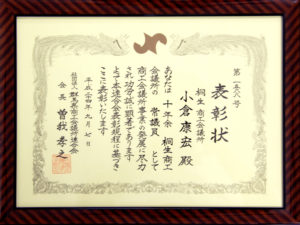 第一五八号
表彰状
桐生商工会議所
小倉康宏殿
あなたは十年余桐生商工
会議所の常議員として
商工会議所事業の発展に尽力
され功労誠に顕著であります
よって本連合会表彰規程に基づき
ここに表彰いたします
平成二十四年九月七日
社団法人群馬県商工会議所連合会
会長曽我孝之